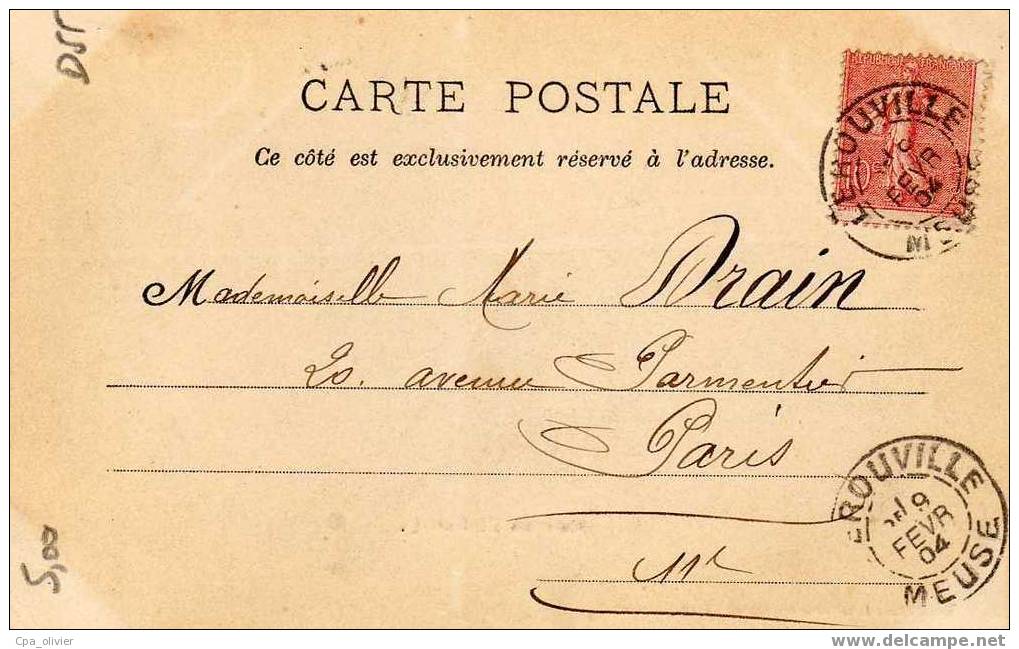 D55
CARTE POSTALE
Ce côté est exclusivement réservé à l'adresse.
REPUBLIQUE FRANÇAISE
LEROUVILLE
FEVR
04
MEUSE
Mademoiselle Marie Drain
20. avenue Parmentier
Paris
11e
5,00
LEROUVILLE
19
FEVR
04
MEUSE
Cpa_olivier
www.delcampe.net